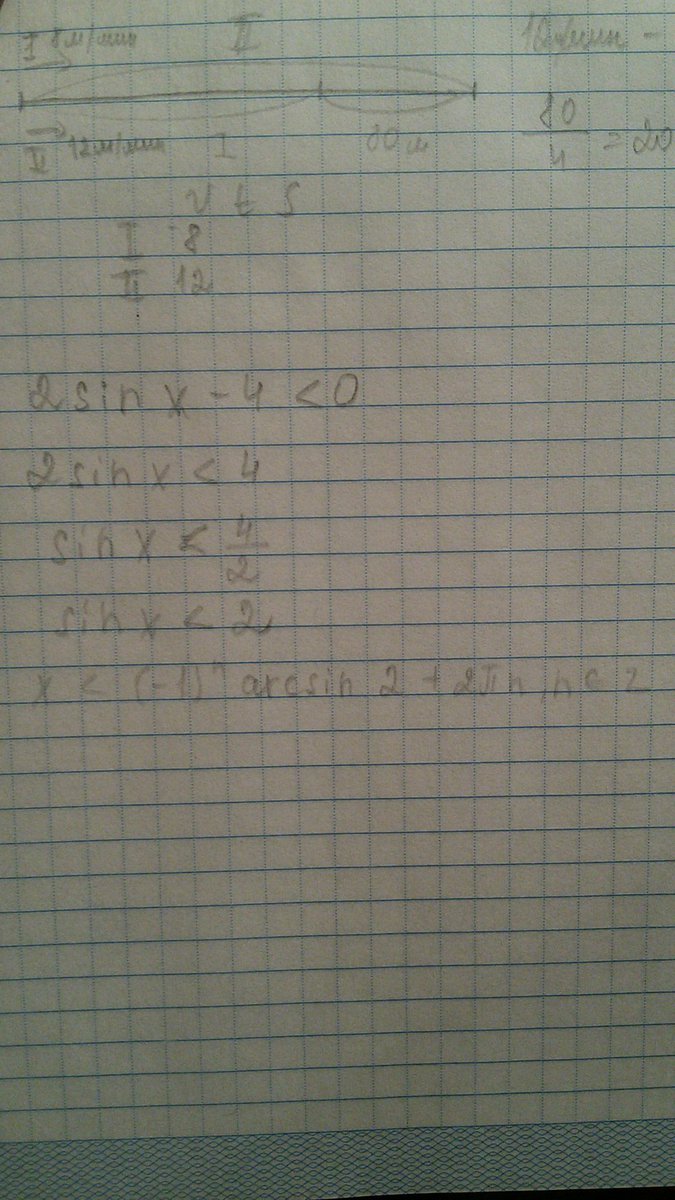 I 8 м/мин II
II 12 м/мин I 80 м
80/4 = 20
V t S
I 8
II 12
2 sin x - 4 < 0
2 sin x < 4
sin x < 4/2
sin x < 2
x < (-1)ⁿ arcsin 2 + 2πn, n ∈ Z